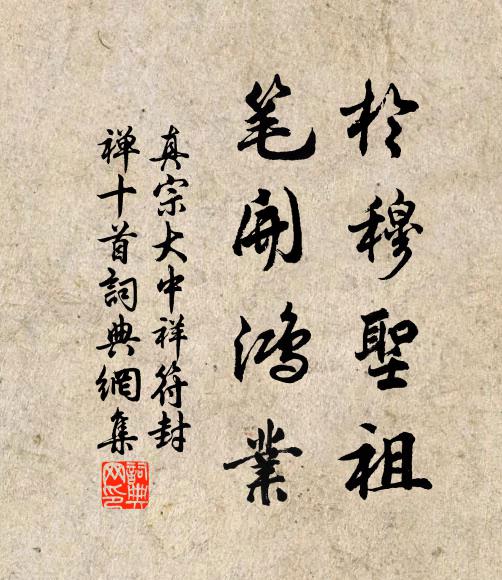 於穆聖祖
笔開鴻業
真宗大中祥符封
禅十首詞典網集
詞典
网印